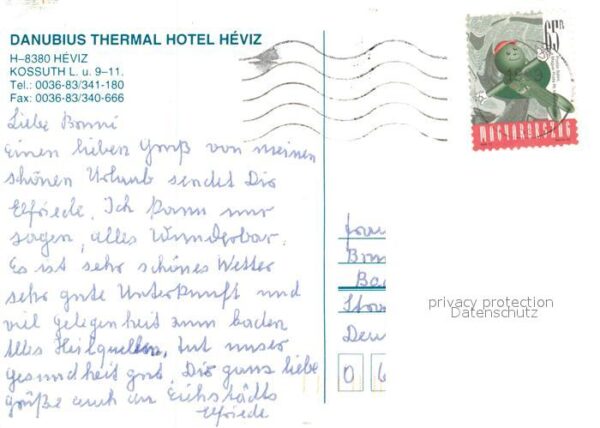 DANUBIUS THERMAL HOTEL HÉVIZ
H–8380 HÉVIZ
KOSSUTH L. u. 9–11.
Tel.: 0036-83/341-180
Fax: 0036-83/340-666
65Ft
MAGYARORSZÁG
Liebe Bonni
Einen lieben Gruß von meinen
schönen Urlaub sendet Dir
Elfriede. Ich kann nur
sagen, alles Wunderbar.
Es ist sehr schönes Wetter
sehr gute Unterkunft und
viel gelegenheit zum baden
Alles Heilquellen, tut unser
Gesundheit gut. Dir ganz liebe
Grüße auch an Eichstädts
Elfriede
privacy protection
Datenschutz
0 6